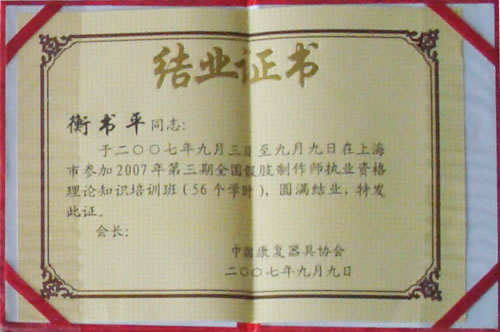 结业证书
衡书平同志:
于二〇〇七年九月三日至九月九日在上海
市参加2007年第三期全国假肢制作师执业资格
理论知识培训班(56个学时),圆满结业,特发
此证。
会长:
中国康复器具协会
二〇〇七年九月九日